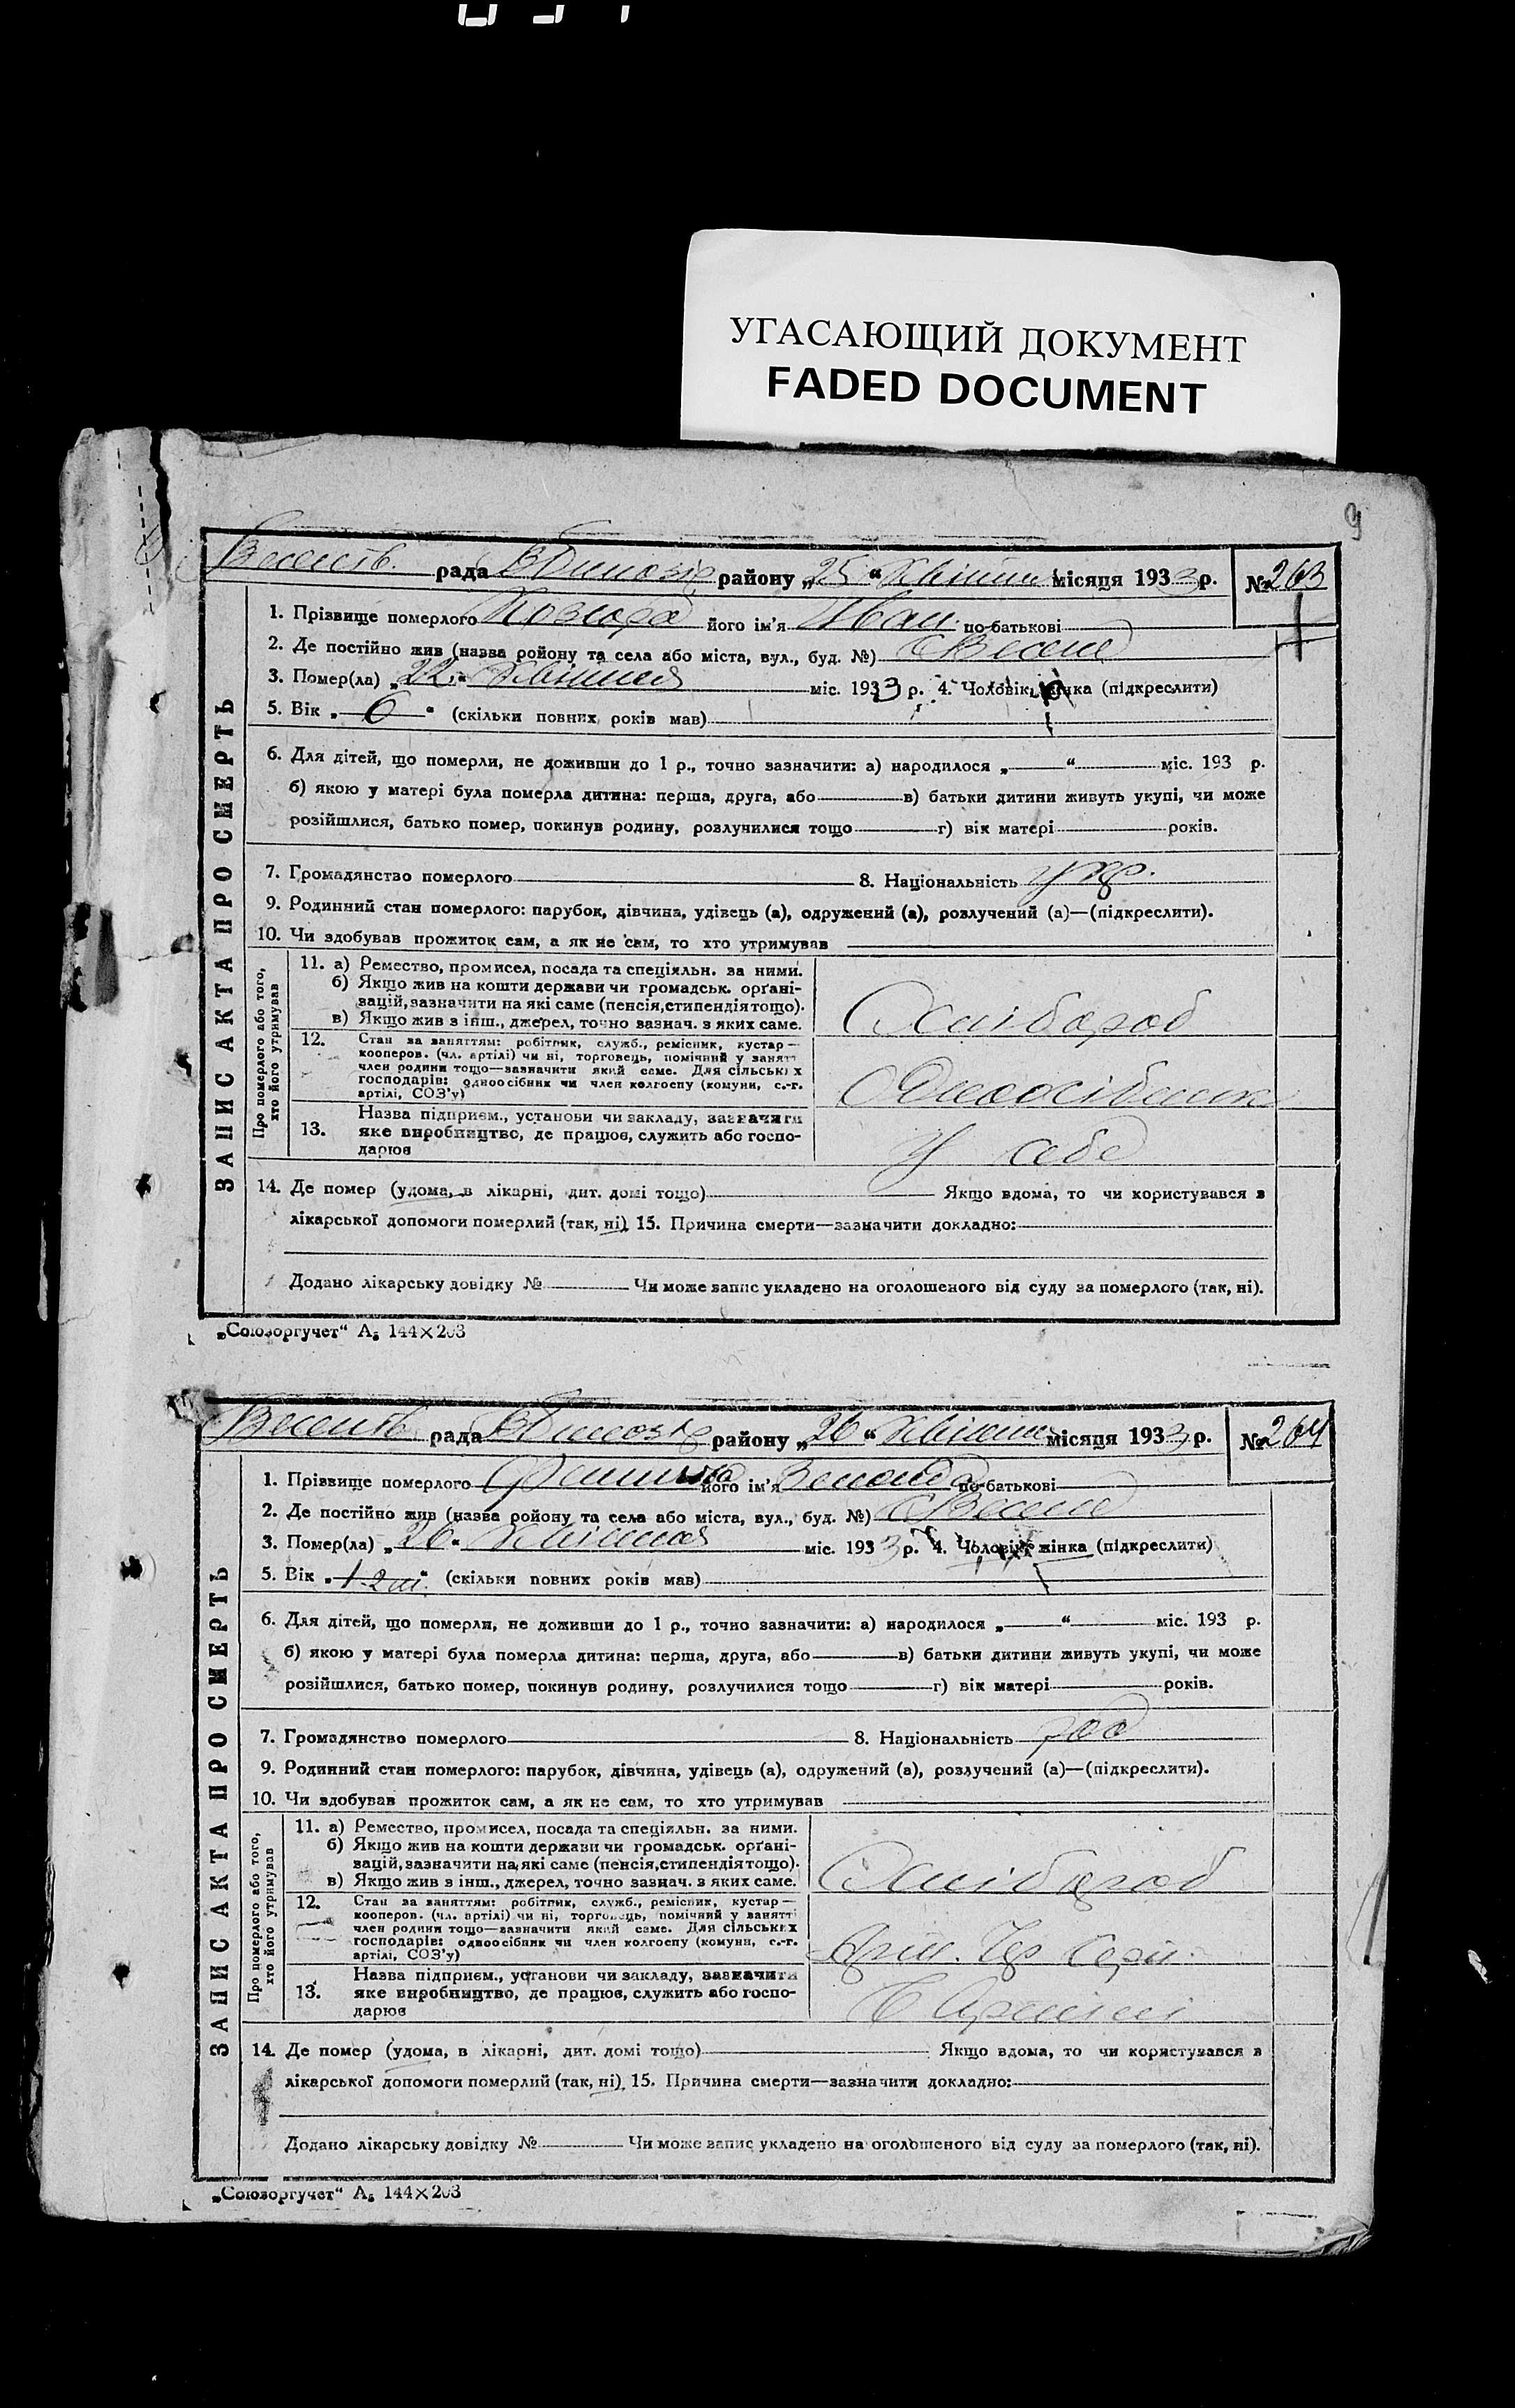 УГАСАЮЩИЙ ДОКУМЕНТ
FADED DOCUMENT
9
рада району „25“ Квітня місяця 1933 р. № 263
1. Прізвище померлого його ім'я Іван по-батькові
2. Де постійно жив (назва ройону та села або міста, вул., буд. №) с Веселе
3. Помер(ла) „22“ Квітня міс. 1933 р. 4. Чоловік, жінка (підкреслити)
5. Вік „6“ (скільки повних років мав)
6. Для дітей, що померли, не доживши до 1 р., точно зазначити: а) народилося „ “ міс. 193 р.
б) якою у матері була померла дитина: перша, друга, або в) батьки дитини живуть укупі, чи може
розійшлися, батько помер, покинув родину, розлучилися тощо г) вік матері років.
7. Громадянство померлого 8. Національність укр.
9. Родинний стан померлого: парубок, дівчина, удівець (а), одружений (а), розлучений (а)—(підкреслити).
10. Чи здобував прожиток сам, а як не сам, то хто утримував
ЗАПИС АКТА ПРО СМЕРТЬ
Про померлого або того, хто його утримував
11. а) Ремество, промисел, посада та спеціяльн. за ними.
б) Якщо жив на кошти держави чи громадськ. орґані-
зацій, зазначити на які саме (пенсія, стипендія тощо).
в) Якщо жив з інш., джерел, точно зазнач. з яких саме.
Хлібороб
12. Стан за заняттям: робітник, служб., ремісник, кустар—
кооперов. (чл. артілі) чи ні, торговець, помічний у занятті
член родини тощо—зазначити який саме. Для сільських
господарів: одноосібник чи член колгоспу (комуни, с.-г.
артілі, СОЗ'у)
Одноосібник
13. Назва підприєм., установи чи закладу, зазначити
яке виробництво, де працює, служить або госпо-
дарює
У себе
14. Де помер (удома, в лікарні, дит. домі тощо) Якщо вдома, то чи користувався з
лікарської допомоги померлий (так, ні) 15. Причина смерти—зазначити докладно:
Додано лікарську довідку № Чи може запис укладено на оголошеного від суду за померлого (так, ні).
„Союзоргучет“ А5 144×203
рада району „26“ Квітня місяця 1933 р. № 264
1. Прізвище померлого його ім'я по-батькові
2. Де постійно жив (назва ройону та села або міста, вул., буд. №) с Веселе
3. Помер(ла) „26“ Квітня міс. 1933 р. 4. Чоловік, жінка (підкреслити)
5. Вік „1 2 м.“ (скільки повних років мав)
6. Для дітей, що померли, не доживши до 1 р., точно зазначити: а) народилося „ “ міс. 193 р.
б) якою у матері була померла дитина: перша, друга, або в) батьки дитини живуть укупі, чи може
розійшлися, батько помер, покинув родину, розлучилися тощо г) вік матері років.
7. Громадянство померлого 8. Національність
9. Родинний стан померлого: парубок, дівчина, удівець (а), одружений (а), розлучений (а)—(підкреслити).
10. Чи здобував прожиток сам, а як не сам, то хто утримував
ЗАПИС АКТА ПРО СМЕРТЬ
Про померлого або того, хто його утримував
11. а) Ремество, промисел, посада та спеціяльн. за ними.
б) Якщо жив на кошти держави чи громадськ. орґані-
зацій, зазначити на які саме (пенсія, стипендія тощо).
в) Якщо жив з інш., джерел, точно зазнач. з яких саме.
Хлібороб
12. Стан за заняттям: робітник, служб., ремісник, кустар—
кооперов. (чл. артілі) чи ні, торговець, помічний у занятті
член родини тощо—зазначити який саме. Для сільських
господарів: одноосібник чи член колгоспу (комуни, с.-г.
артілі, СОЗ'у)
13. Назва підприєм., установи чи закладу, зазначити
яке виробництво, де працює, служить або госпо-
дарює
В Артілі
14. Де помер (удома, в лікарні, дит. домі тощо) Якщо вдома, то чи користувався з
лікарської допомоги померлий (так, ні) 15. Причина смерти—зазначити докладно:
Додано лікарську довідку № Чи може запис укладено на оголошеного від суду за померлого (так, ні).
„Союзоргучет“ А5 144×203